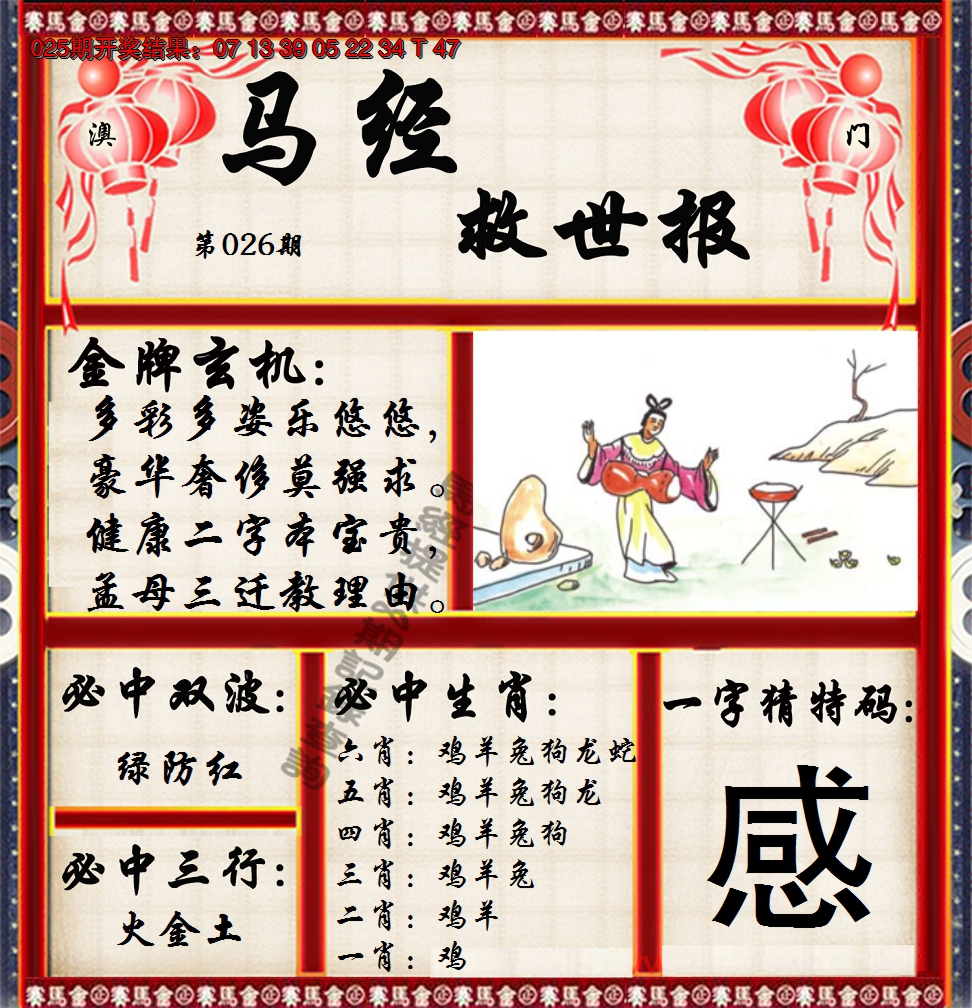 赛馬会
025期开奖结果：07 13 39 05 22 34 T 47
澳
门
马经
救世报
第026期
金牌玄机：
多彩多姿乐悠悠，
豪华奢侈莫强求。
健康二字本宝贵，
孟母三迁教理由。
必中双波：
绿防红
必中三行：
火金土
必中生肖：
六肖：鸡羊兔狗龙蛇
五肖：鸡羊兔狗龙
四肖：鸡羊兔狗
三肖：鸡羊兔
二肖：鸡羊
一肖：鸡
一字猜特码：
感